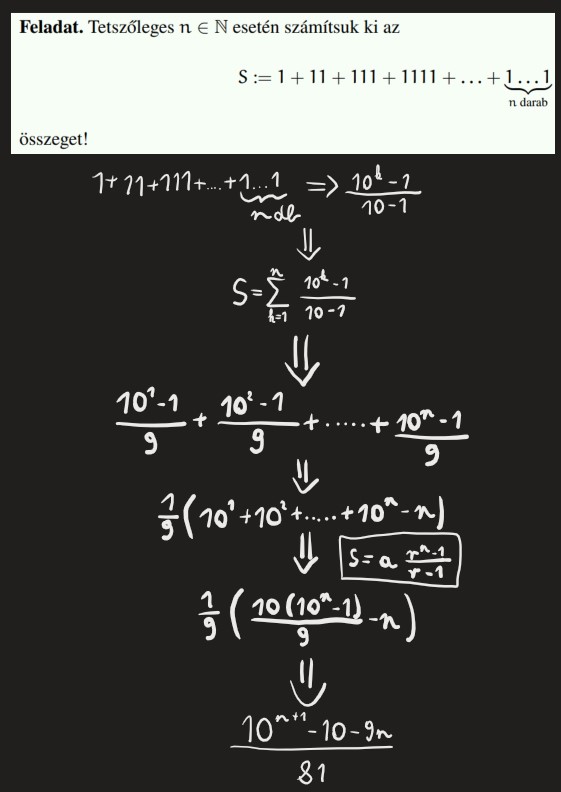 Feladat. Tetszőleges n ∈ ℕ esetén számítsuk ki az
S := 1 + 11 + 111 + 1111 + ... + 1...1
n darab
összeget!
1+11+111+....+1...1 => (10^k - 1)/(10-1)
ndb
⇓
S = ∑_{k=1}^{n} (10^k - 1)/(10-1)
⇓
(10^1 - 1)/9 + (10^2 - 1)/9 + ..... + (10^n - 1)/9
⇓
1/9 (10^1 + 10^2 + ..... + 10^n - n)
⇓ S = a (r^n - 1)/(r - 1)
1/9 (10(10^n - 1)/9 - n)
⇓
(10^{n+1} - 10 - 9n)/81